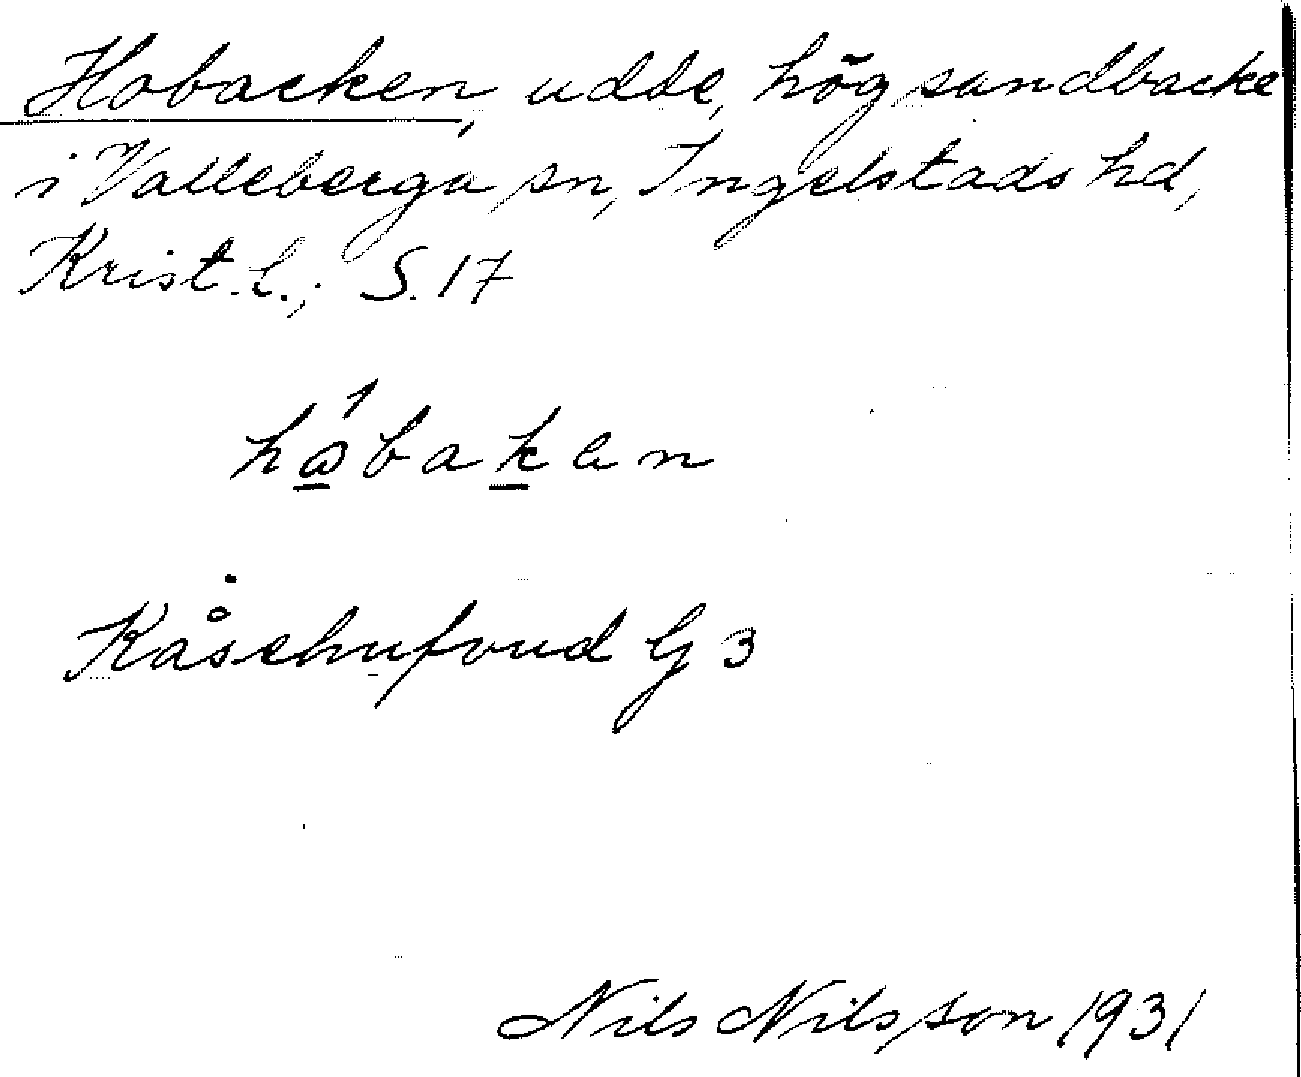 Hobacken, udde, hög sandbacke
i Valleberga sn, Ingelstads hd,
Krist. l.; S. 17
Kåsehufvud G 3
Nils Nilsson 1931